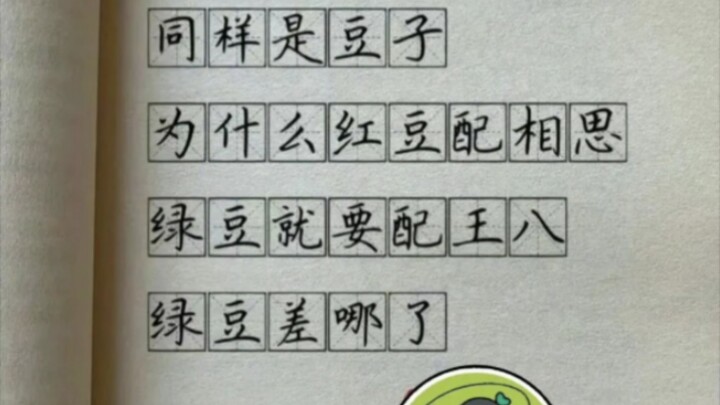 同样是豆子
为什么红豆配相思
绿豆就要配王八
绿豆差哪了